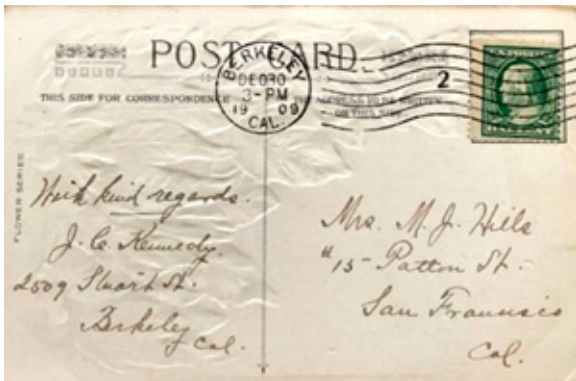 POST CARD.
THIS SIDE FOR CORRESPONDENCE
THE ADDRESS TO BE WRITTEN
ON THIS SIDE
BERKELEY
DEC 30
3-PM
1909
CAL.
2
FLOWER SERIES
With kind regards.
J. C. Kennedy.
2509 Stuart St.
Berkeley
Cal.
Mrs. M. J. Hills
# 15 Patton St.
San Francisco
Cal.